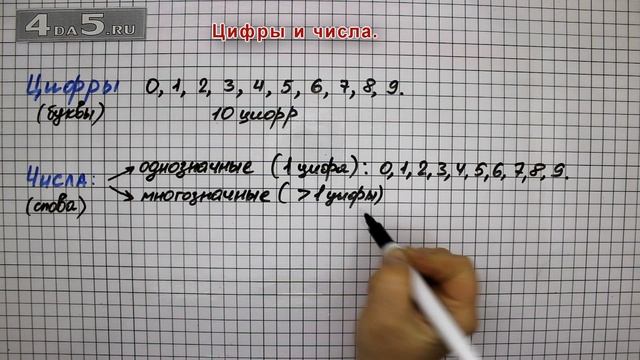 4DA5.RU
Цифры и числа.
Цифры 0, 1, 2, 3, 4, 5, 6, 7, 8, 9.
(буквы) 10 цифр
Числа: однозначные (1 цифра): 0,1,2,3,4,5,6,7,8,9.
(слова) многозначные (>1 цифры)